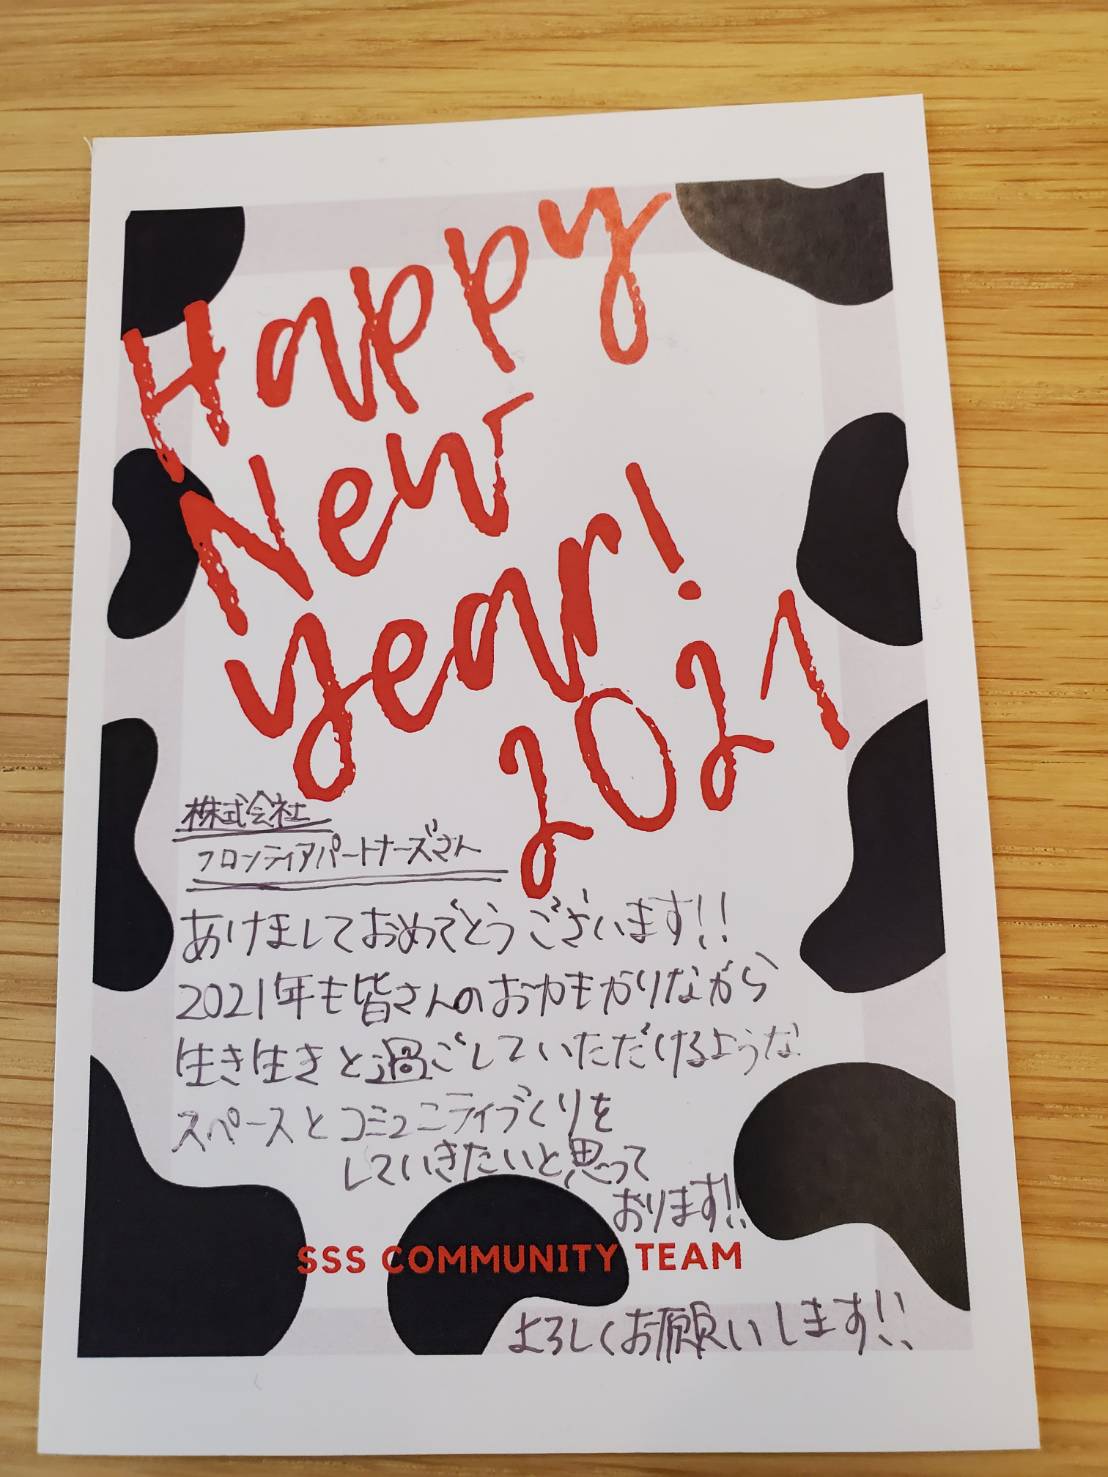 Happy
New
year!
2021
株式会社
フロンティアパートナーズさん
あけましておめでとうございます!!
2021年も皆さんのおかもかりながら
生き生きと過ごしていただけるような
スペースとコミュニティづくりを
していきたいと思って
おります!!
SSS COMMUNITY TEAM
よろしくお願いします!!